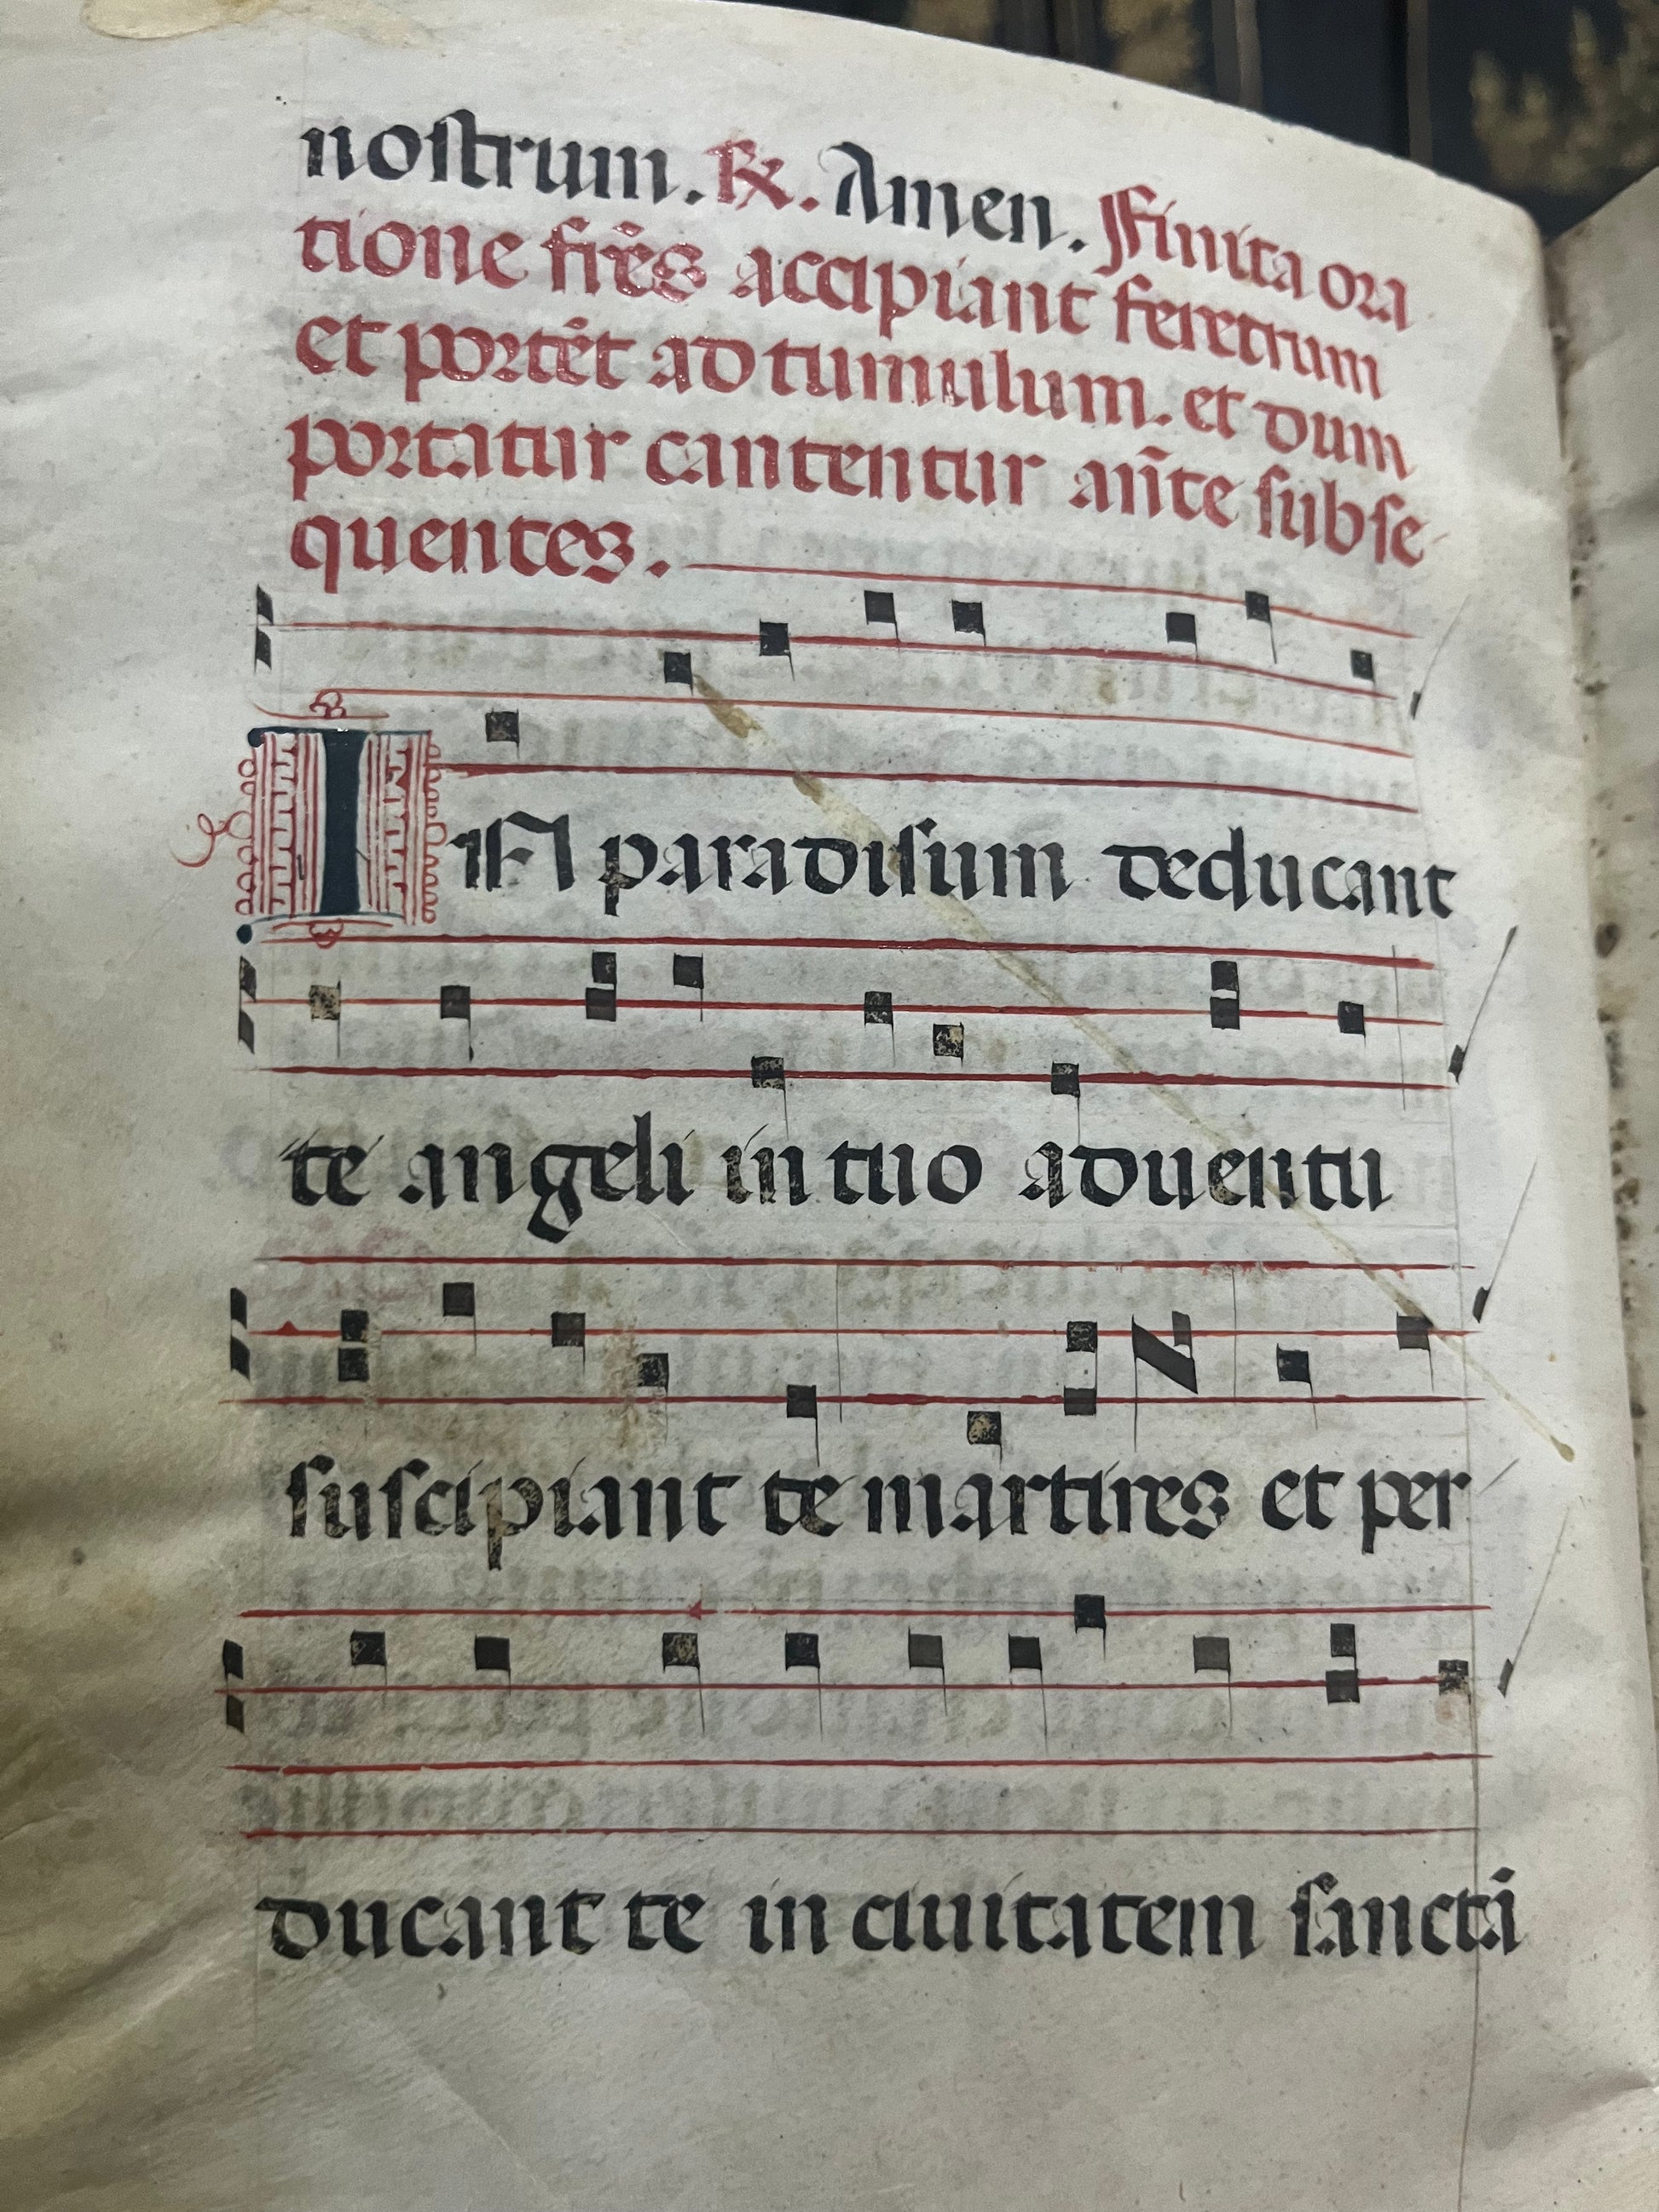 nostrum. ℟. Amen. Finita ora
tione fr̃es accipiant feretrum
et portẽt ad tumulum. et dum
portatur cantentur añte subse
quentes.
IN paradisum deducant
te angeli in tuo aduentu
suscipiant te martires et per
ducant te in ciuitatem sanctã